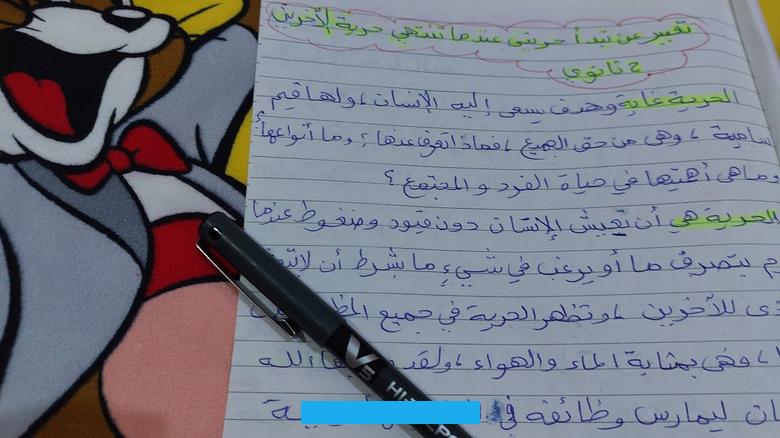 تعبير عن تبدأ حريتي عندما تنتهي حرية الآخرين
2 ثانوي
الحرية غاية وهدف يسعى إليه الإنسان، ولها قيم
سامية، وهي من حق الجميع، فماذا تعرف عنها؟ وما أنواعها؟
وما هي أهميتها في حياة الفرد و المجتمع؟
الحرية هي أن تعيش الإنسان دون قيود وضغوط عندما
م بتصرف ما أو يرغب في شيء ما بشرط أن لا
ذى للآخرين، وتظهر الحرية في جميع
ا، وهي بمثابة الماء والهواء، ولقد الله
ان ليمارس وظائفه في
V5
HI-TECPO